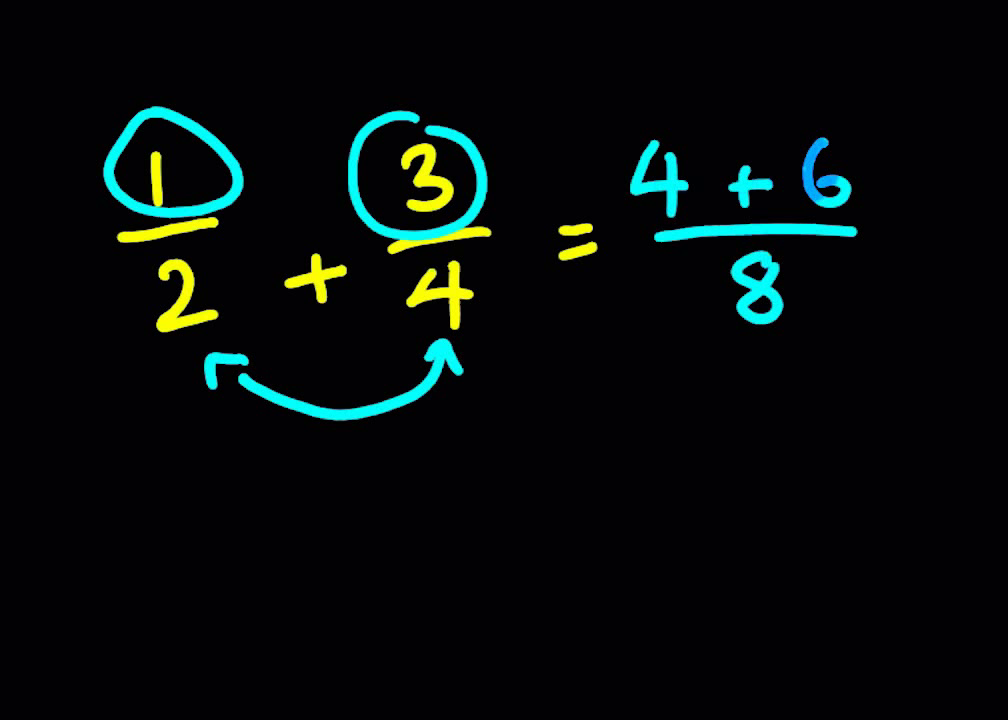 1/2 + 3/4 = (4 + 6)/8